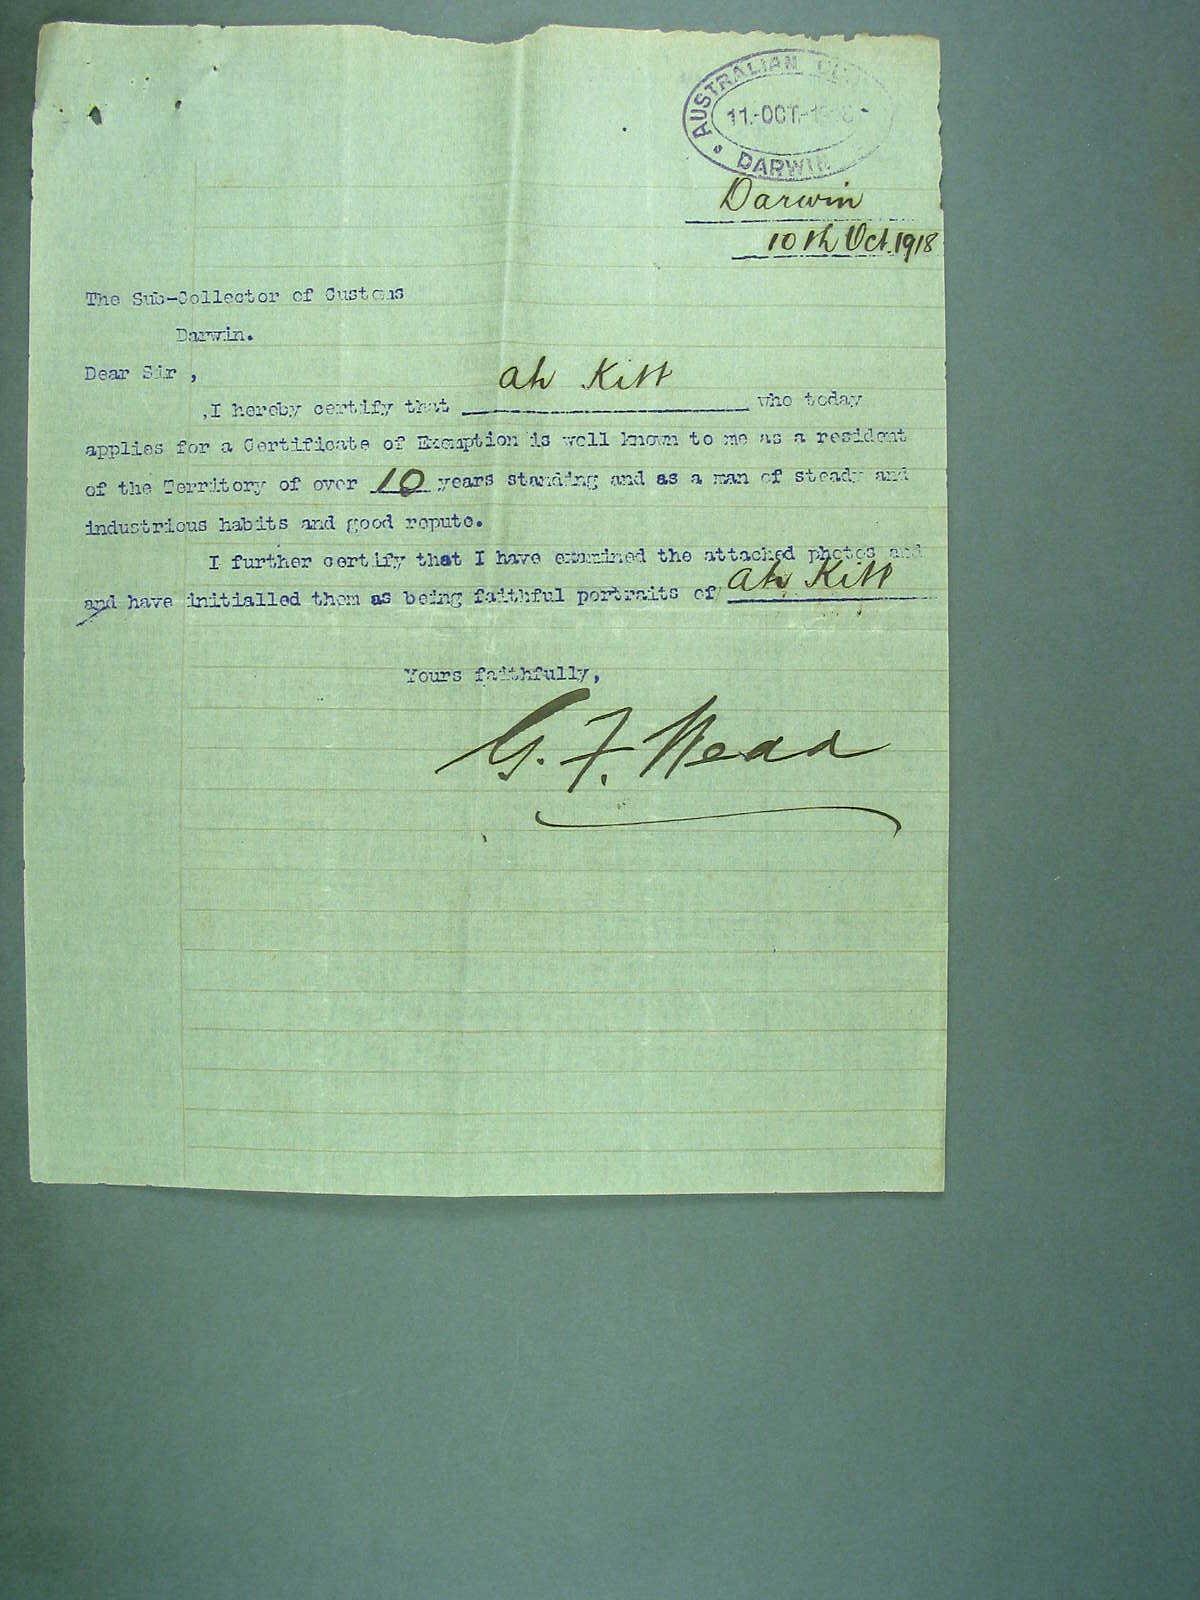 AUSTRALIAN
11.-OCT.-
DARWIN
Darwin
10th Oct. 1918
The Sub-Collector of Customs
Darwin.
Dear Sir ,
,I hereby certify that Ah Kitt who today
applies for a Certificate of Exemption is well known to me as a resident
of the Territory of over 10 years standing and as a man of steady and
industrious habits and good repute.
I further certify that I have examined the attached photos and
and have initialled them as being faithful portraits of Ah Kitt
Yours faithfully,
G. F.